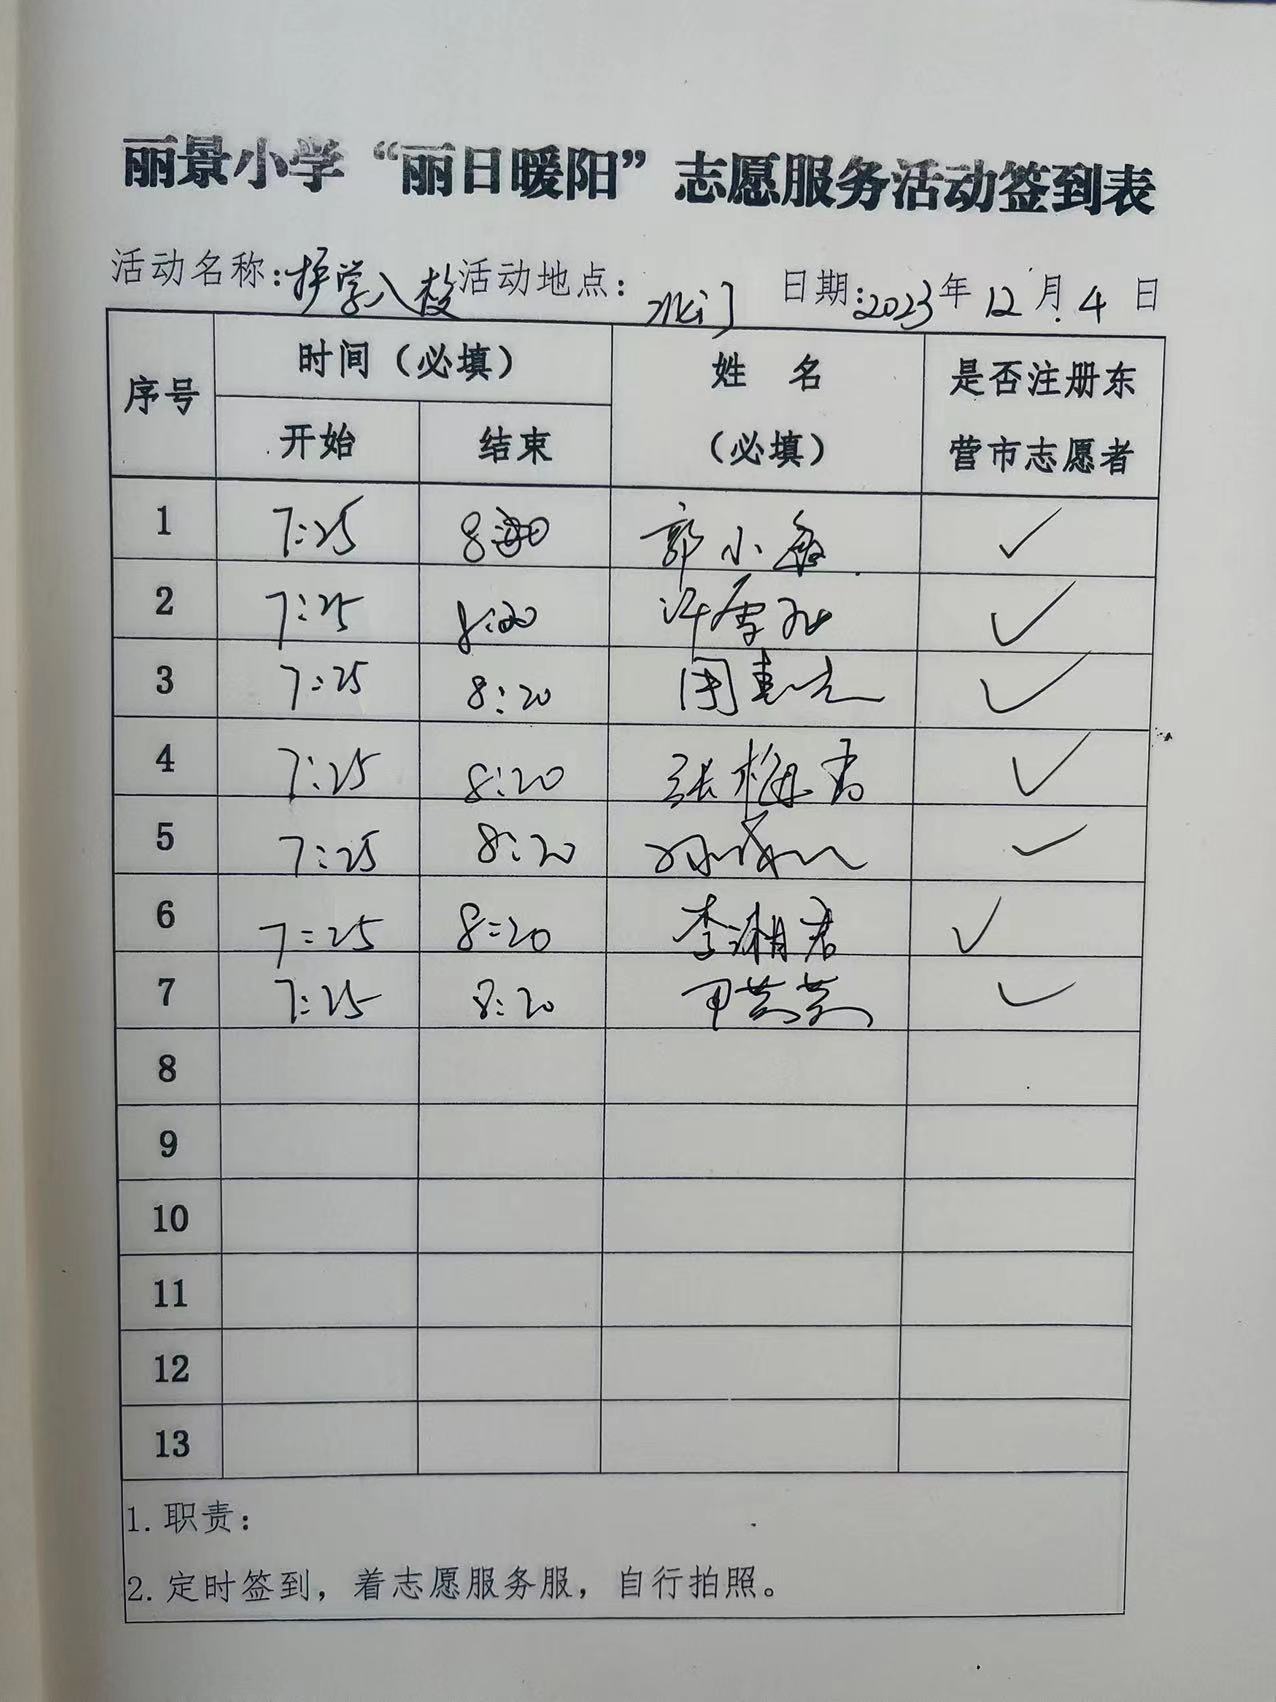 丽景小学“丽日暖阳”志愿服务活动签到表
活动名称:护学入校 活动地点: 北门 日期:2023年12月4日
序号 时间(必填) 姓名(必填) 是否注册东营市志愿者
开始 结束
1 7:25 郭小
2 7:25 8:20 许
3 7:25 8:20
4 7:25 8:20 张梅
5 7:25 8:20
6 7:25 8:20 李湘君
7 7:25 8:20
8
9
10
11
12
13
1.职责:
2.定时签到,着志愿服务服,自行拍照。